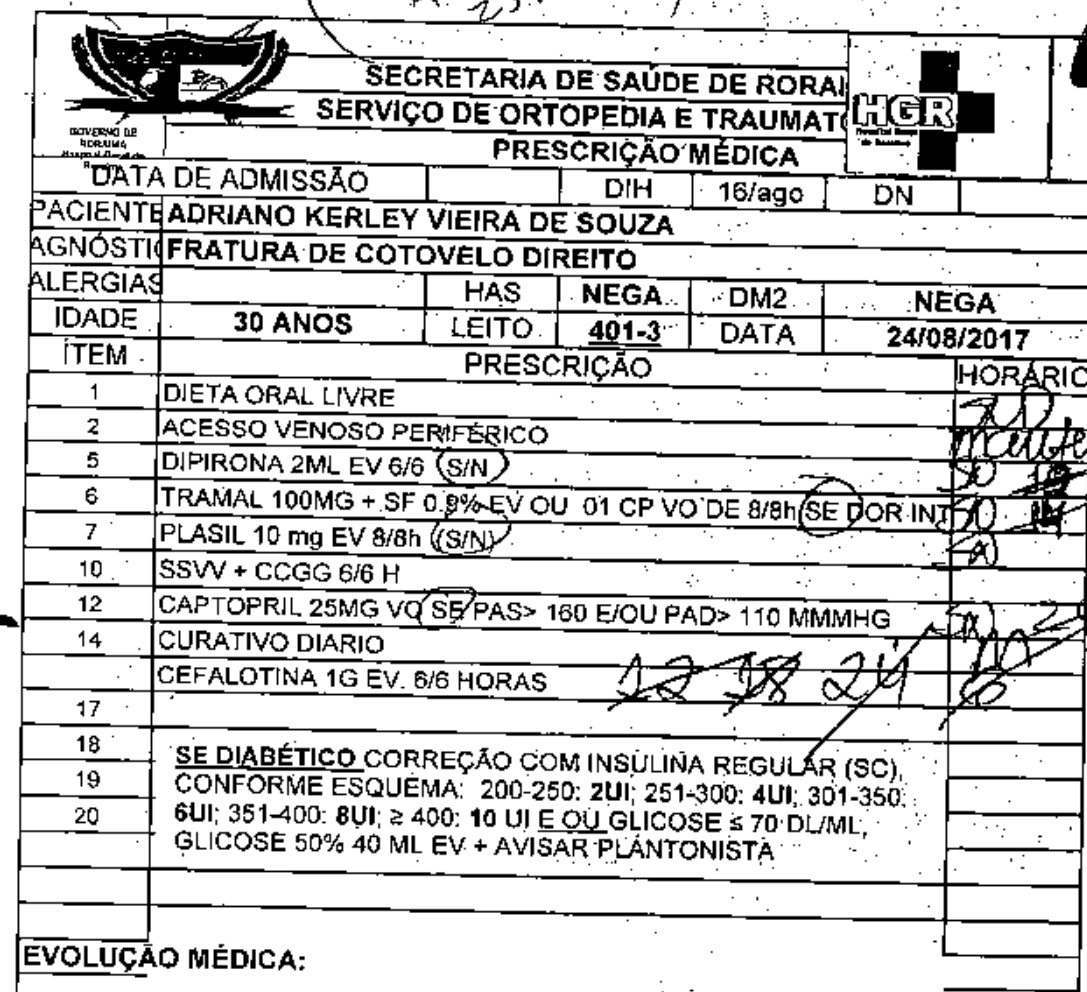 SECRETARIA DE SAÚDE DE RORAI
SERVIÇO DE ORTOPEDIA E TRAUMATO
HGR
GOVERNO DE RORAIMA
PRESCRIÇÃO MÉDICA
DATA DE ADMISSÃO DIH 16/ago DN
PACIENTE ADRIANO KERLEY VIEIRA DE SOUZA
AGNÓSTIC FRATURA DE COTOVELO DIREITO
ALERGIAS HAS NEGA DM2 NEGA
IDADE 30 ANOS LEITO 401-3 DATA 24/08/2017
ÍTEM PRESCRIÇÃO HORÁRIO
1 DIETA ORAL LIVRE
2 ACESSO VENOSO PERIFÉRICO
5 DIPIRONA 2ML EV 6/6 (S/N)
6 TRAMAL 100MG + SF 0.9% EV OU 01 CP VO DE 8/8h SE DOR INT
7 PLASIL 10 mg EV 8/8h (S/N)
10 SSVV + CCGG 6/6 H
12 CAPTOPRIL 25MG VO SE PAS> 160 E/OU PAD> 110 MMMHG
14 CURATIVO DIARIO
CEFALOTINA 1G EV. 6/6 HORAS 12 18 24 6
17
18 SE DIABÉTICO CORREÇÃO COM INSULINA REGULAR (SC),
19 CONFORME ESQUEMA: 200-250: 2UI; 251-300: 4UI; 301-350:
20 6UI; 351-400: 8UI; ≥ 400: 10 UI E OU GLICOSE ≤ 70 DL/ML,
GLICOSE 50% 40 ML EV + AVISAR PLANTONISTA
EVOLUÇÃO MÉDICA: